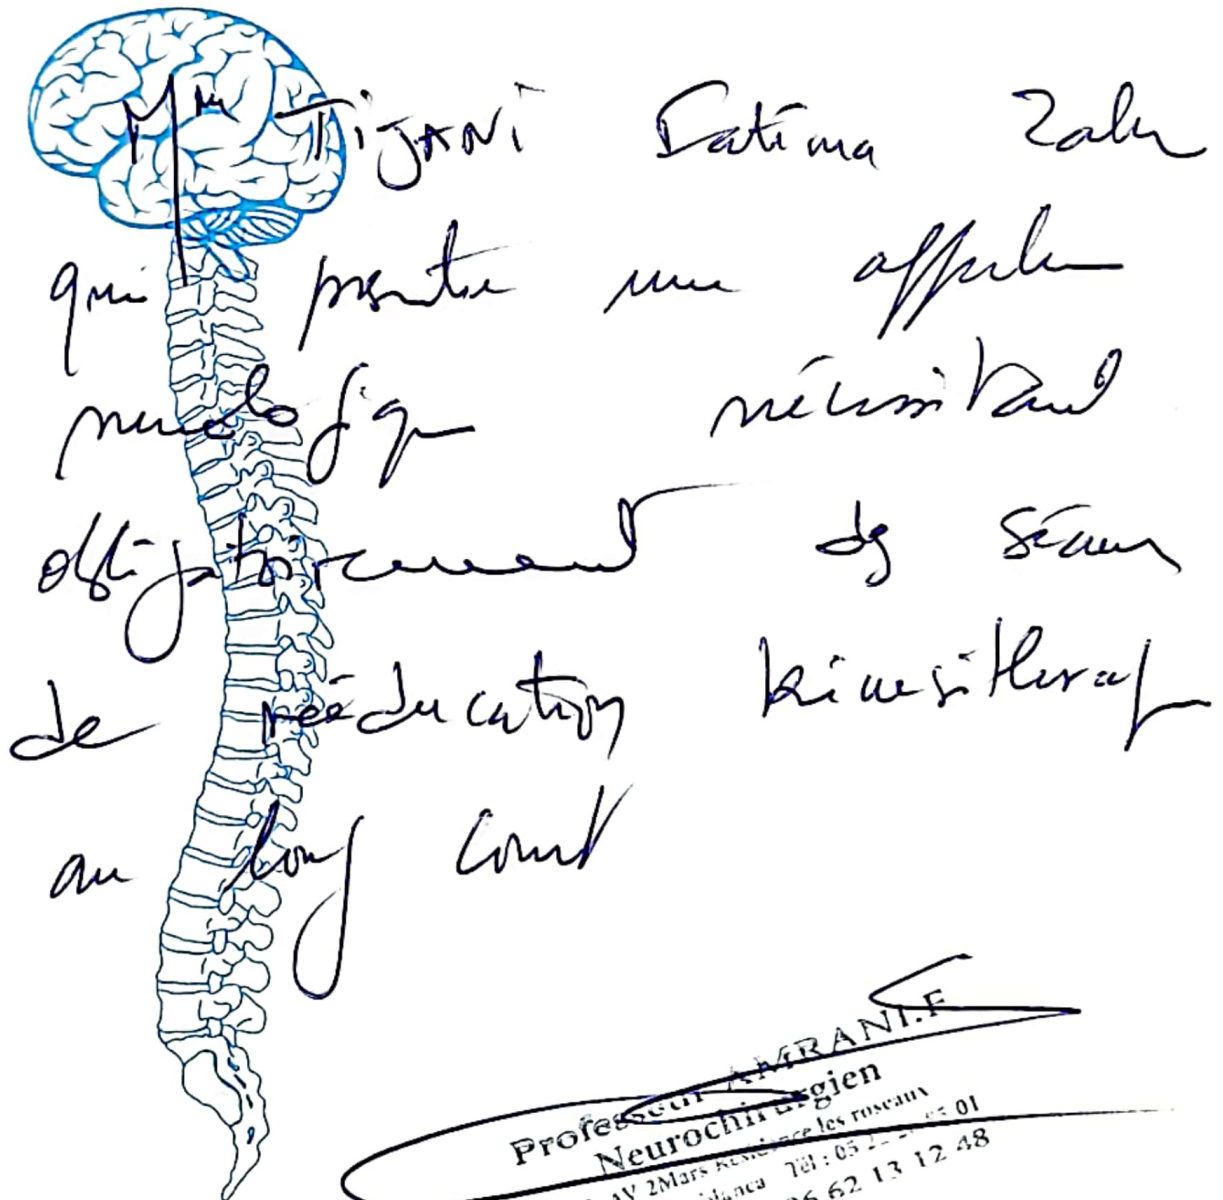 Mme TIJANI Fatima Zahr
qui présente une affection
neurologique nécessitant
obligatoirement des séances
de rééducation kinésithérapie
au long court
Professeur AMRANI.F
Neurochirurgien
AV 2Mars Résidence les roseaux
Tél : 05 2 01
06 62 13 12 48